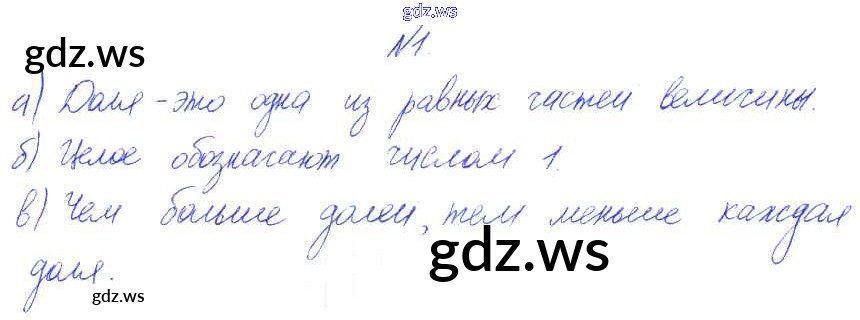 gdz.ws
gdz.ws
№1.
а) Доля - это одна из равных частей величины.
б) Целое обозначают числом 1.
в) Чем больше долей, тем меньше каждая
доля.
gdz.ws
gdz.ws